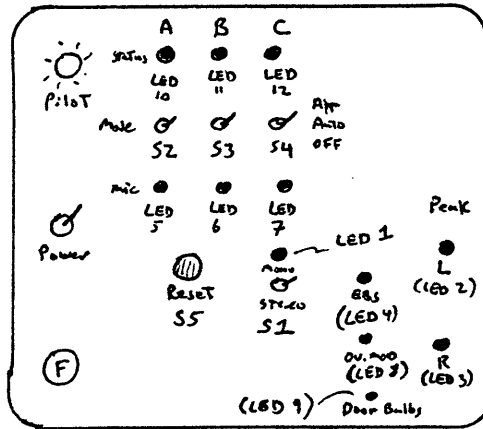 A B C
Status
LED 10 LED 11 LED 12
Pilot
Mode S2 S3 S4
App
Auto
OFF
Mic
LED 5 LED 6 LED 7
Power
Peak
LED 1
Mono
STEREO
S1
Reset
S5
L
(LED 2)
EBS
(LED 4)
OV. MOD
(LED 8)
R
(LED 3)
F
(LED 9) Door Bulbs